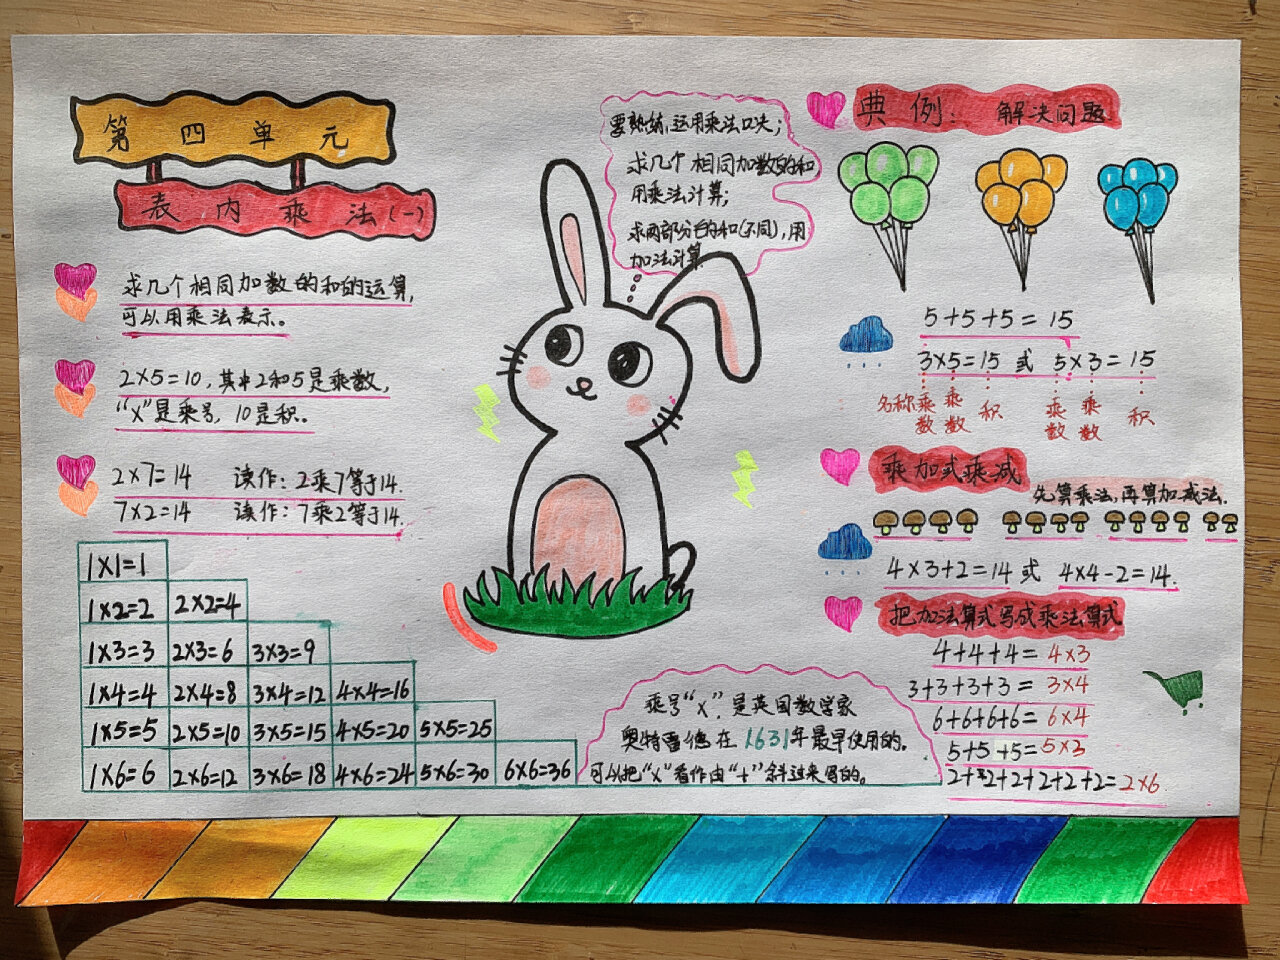 第四单元
表内乘法(一)
求几个相同加数的和的运算,
可以用乘法表示。
2×5=10,其中2和5是乘数,
“×”是乘号,10是积。
2×7=14 读作:2乘7等于14.
7×2=14 读作:7乘2等于14.
1×1=1
1×2=2 2×2=4
1×3=3 2×3=6 3×3=9
1×4=4 2×4=8 3×4=12 4×4=16
1×5=5 2×5=10 3×5=15 4×5=20 5×5=25
1×6=6 2×6=12 3×6=18 4×6=24 5×6=30 6×6=36
要熟练运用乘法口诀;
求几个相同加数的和
用乘法计算;
求两部分的和(不同),用
加法计算.
乘号“×”是英国数学家
奥特雷德在1631年最早使用的。
可以把“×”看作由“+”斜过来写的。
典例:解决问题
5+5+5=15
3×5=15或5×3=15
名称 乘数 乘数 积 乘数 乘数 积
乘加或乘减
先算乘法,再算加减法.
4×3+2=14或 4×4-2=14.
把加法算式写成乘法算式
4+4+4=4×3
3+3+3+3=3×4
6+6+6+6=6×4
5+5+5=5×3
2+2+2+2+2+2=2×6